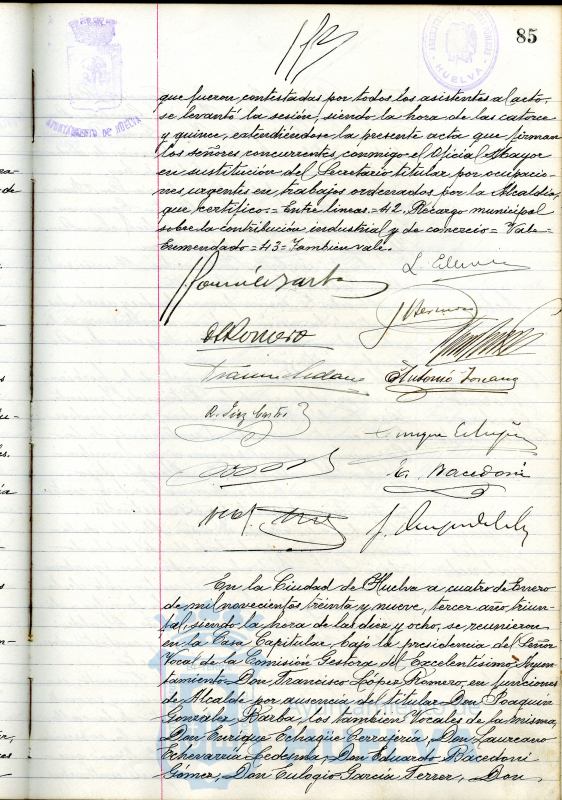 85
AYUNTAMIENTO DE HUELVA
HUELVA
que fueron contestadas por todos los asistentes al acto,
se levantó la sesión, siendo la hora de las catorce
y quince, extendiéndose la presente acta que firman
los señores concurrentes, conmigo el Oficial Mayor
en sustitución del Secretario titular por ocupacio-
nes urgentes en trabajos ordenados por la Alcaldía,
que certifico = Entre lineas = 42. Recargo municipal
sobre la contribución industrial y de comercio = Vale =
Enmendado = 43 = Tambien vale.
Romero
Antonio Toscano
E. Bacedoni
En la Ciudad de Huelva a cuatro de Enero
de mil novecientos treinta y nueve, tercer año triun-
fal, siendo la hora de las diez y ocho, se reunieron
en la Casa Capitular bajo la presidencia del Señor
Vocal de la Comisión Gestora del Excelentísimo Ayun-
tamiento Don Francisco López Romero, en funciones
de Alcalde por ausencia del titular Don Joaquín
González Barba, los tambien Vocales de la misma,
Don Enrique Echagüe Cerrajería, Don Laureano
Echevarría Ledesma, Don Eduardo Bacedoni
Gómez, Don Eulogio García Ferrer, Don
Ayuntamiento de
HUELVA